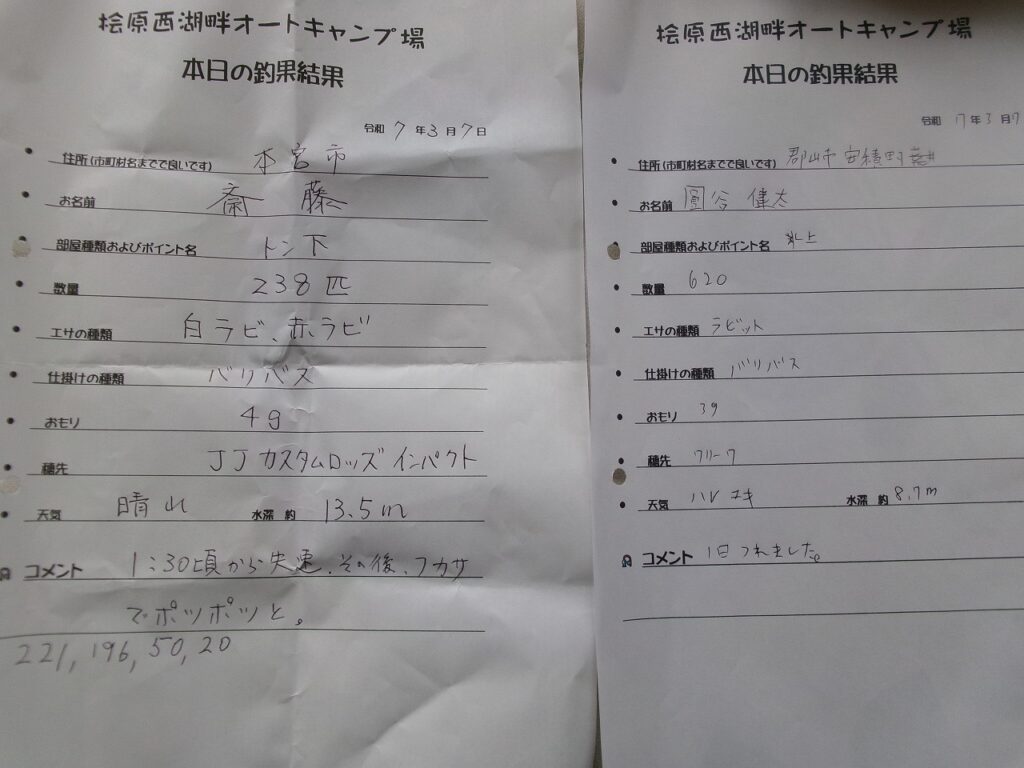 桧原西湖畔オートキャンプ場
本日の釣果結果
令和 7 年 3 月 7 日
住所(市町村名までで良いです) 本宮市
お名前 齋藤
部屋種類およびポイント名 トン下
数量 238匹
エサの種類 白ラビ、赤ラビ
仕掛けの種類 バリバス
おもり 4g
穂先 JJカスタムロッズインパクト
天気 晴れ 水深 約 13.5m
コメント 1:30頃から失速、その後、フカサ
でポツポツと。
221, 196, 50, 20
桧原西湖畔オートキャンプ場
本日の釣果結果
令和 17 年 3 月 7
住所(市町村名までで良いです) 郡山市 安積町
お名前 圓谷 健太
部屋種類およびポイント名 氷上
数量 620
エサの種類 ラビット
仕掛けの種類 バリバス
おもり 3g
穂先
天気 ハレ ユキ 水深 約 8.7m
コメント 1日つれました。